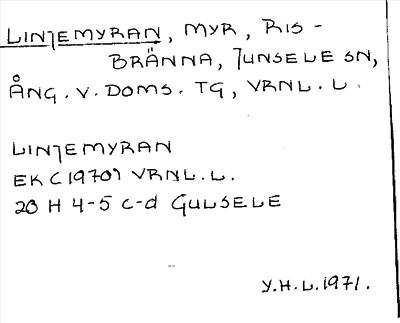 LINJEMYRAN, MYR, RIS-
BRÄNNA, JUNSELE SN,
ÅNG. V. DOMS. TG, VRNL. L.
LINJEMYRAN
EK (1970) VRNL. L.
20 H 4-5 C-d GULSELE
Y.H.L. 1971.